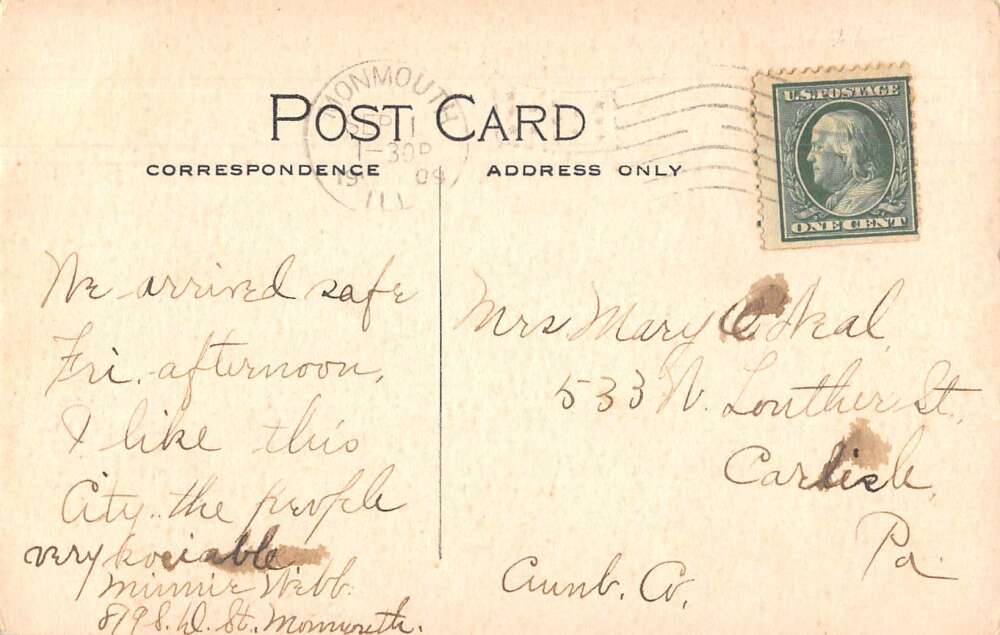 POST CARD
CORRESPONDENCE
ADDRESS ONLY
MONMOUTH
SEP 1
1-30P
19 09
ILL
U.S. POSTAGE
ONE CENT
We arrived safe
Fri. afternoon,
I like this
City. the people
very sociable
Minnie Webb.
819 S. D. St. Monmouth.
Mrs Mary O Neal,
533 N. Louther St.
Carlisle,
Pa.
Cumb. Co.